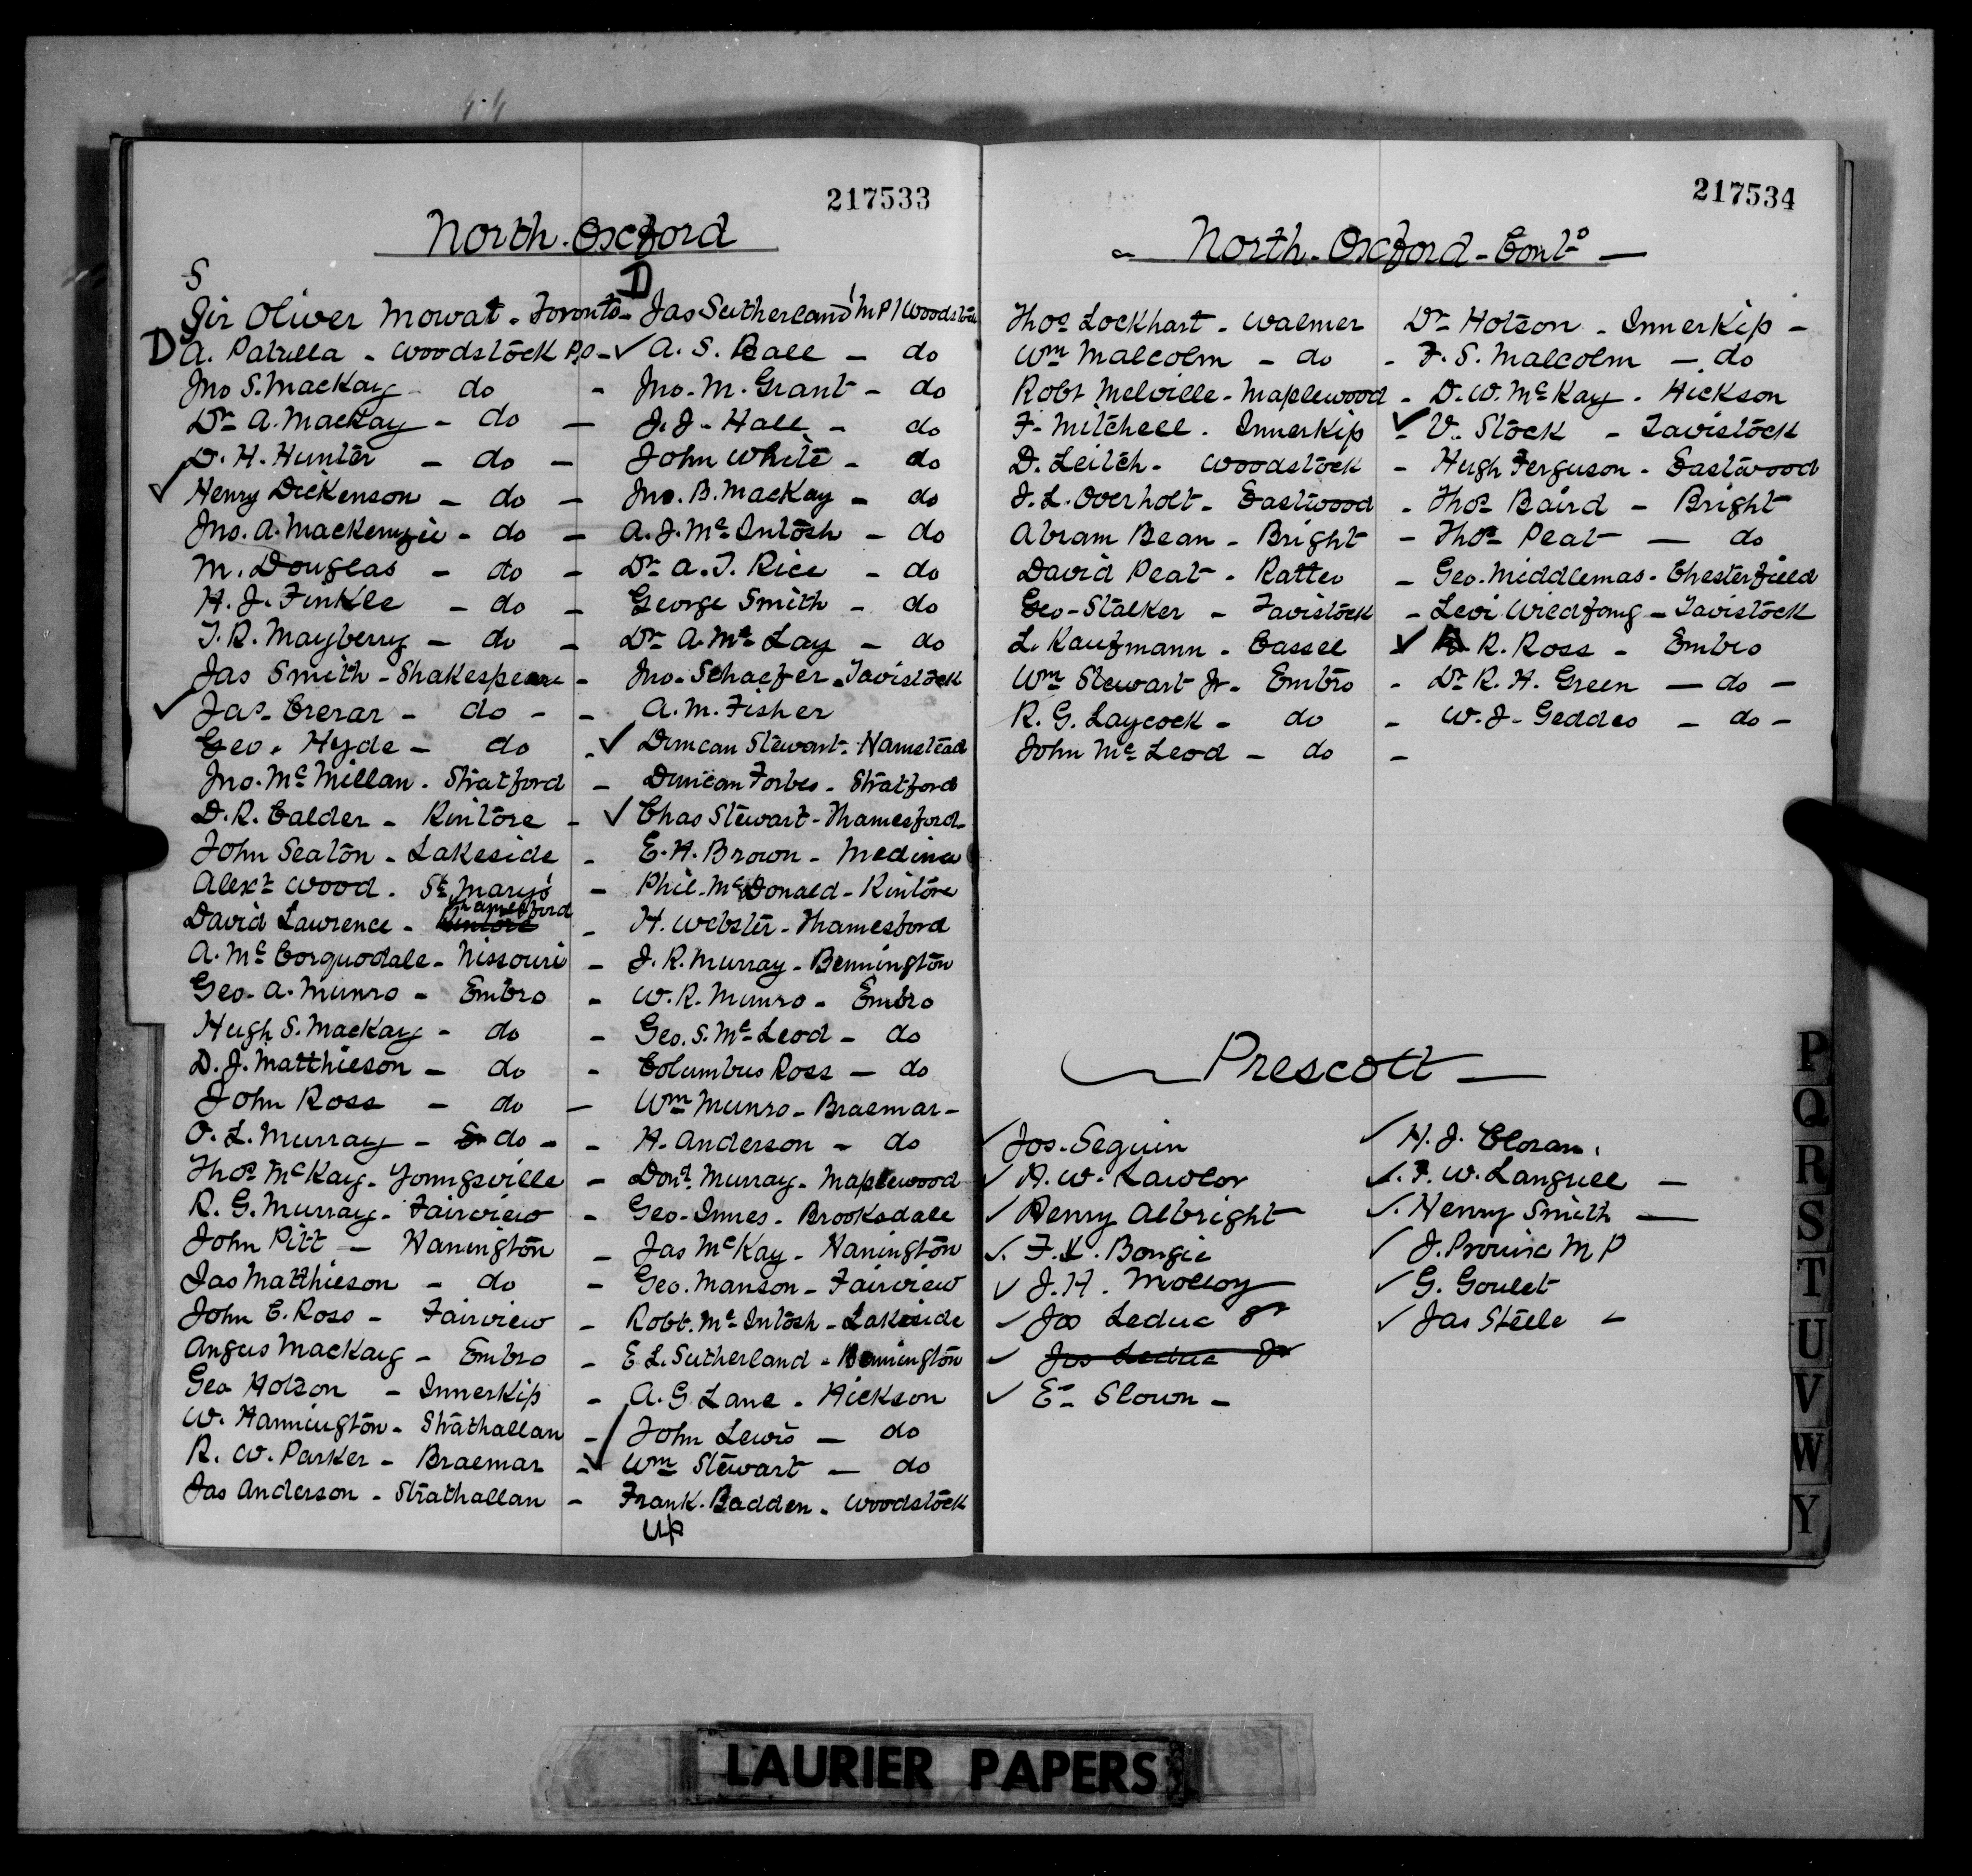 217533
North. Oxford
S
D
Sir Oliver Mowat - Toronto - Jas Sutherland M P / Woodstock
D A. Patulla - Woodstock P.O - ✓ A. S. Ball - do
Jno S. MacKay - do - Jno. M. Grant - do
Dr A. MacKay - do - J. J. Hall - do
D. H. Hunter - do - John White - do
✓ Henry Dickenson - do - Jno. B. MacKay - do
Jno. A. Mackenzie - do - A. J. Mc Intosh - do
M. Douglas - do - Dr A. T. Rice - do
H. J. Finkle - do - George Smith - do
T. R. Mayberry - do - Dr A. Mc Lay - do
Jas Smith - Shakespeare - Jno. Schaefer - Tavistock
✓ Jas. Crerar - do - - A. M. Fisher
Geo. Hyde - do - ✓ Duncan Stewart - Hamstead
Jno. Mc Millan - Stratford - Duncan Forbes - Stratford
D. R. Calder - Kintore - ✓ Chas Stewart - Thamesford
John Seaton - Lakeside - E. H. Brown - Medina
Alexr Wood - St Mary's - Phil. McDonald - Kintore
David Lawrence - Kintore Thamesford - H. Webster - Thamesford
A. Mc Corquodale - Nissouri - J. R. Murray - Bennington
Geo. A. Munro - Embro - W. R. Munro - Embro
Hugh S. MacKay - do - Geo. S. Mc Leod - do
D. J. Matthieson - do - Columbus Ross - do
John Ross - do - Wm Munro - Braemar -
O. L. Murray - do - - H. Anderson - do
Thos McKay - Youngsville - Dond Murray - Maplewood
R. G. Murray - Fairview - Geo. Innes - Brooksdale
John Pitt - Hanington - Jas McKay - Hanington
Jas Matthieson - do - Geo. Manson - Fairview
John C. Ross - Fairview - Robt. Mc Intosh - Lakeside
Angus MacKay - Embro - E L. Sutherland - Bennington
Geo Hotson - Innerkip - A. G Lane - Hickson
W. Hannington - Strathallan - John Lewis - do
R. W. Parker - Braemar - ✓ Wm Stewart - do
Jas Anderson - Strathallan - Frank. Badden - Woodstock
up
217534
North. Oxford - Contd
Thos Lockhart - Walmer Dr Hotson - Innerkip -
Wm Malcolm - do - F. S. Malcolm - do
Robt Melville - Maplewood - D. W. Mc Kay - Hickson
F. Mitchell - Innerkip ✓ - V. Stock - Tavistock
D. Leitch - Woodstock - Hugh Ferguson - Eastwood
J. L. Overholt - Eastwood - Thos Baird - Bright
Abram Bean - Bright - Thos Peat - do
David Peat - Ratteo - Geo. Middlemas - Chesterfield
Geo. Stalker - Tavistock - Levi Wiedfong - Tavistock
L. Kaufmann - Cassel ✓ R. Ross - Embro
Wm Stewart Jr - Embro - Dr R. H. Green - do -
R. G. Laycock - do - W. J. Geddes - do -
John Mc Leod - do -
Prescott
✓ Jos. Seguin ✓ H. J. Cloran
✓ A. W. Lawlor ✓ F. W. Langrell -
✓ Henry Albright ✓ Henry Smith -
✓ F. Bongie ✓ J. Prouix M P
✓ J. H. Molloy ✓ G. Goulet
✓ Jos Leduc Sr ✓ Jas Steele -
✓ Jos Leduc Jr
✓ E. Slown -
P
Q
R
S
T
U
V
W
Y
LAURIER PAPERS